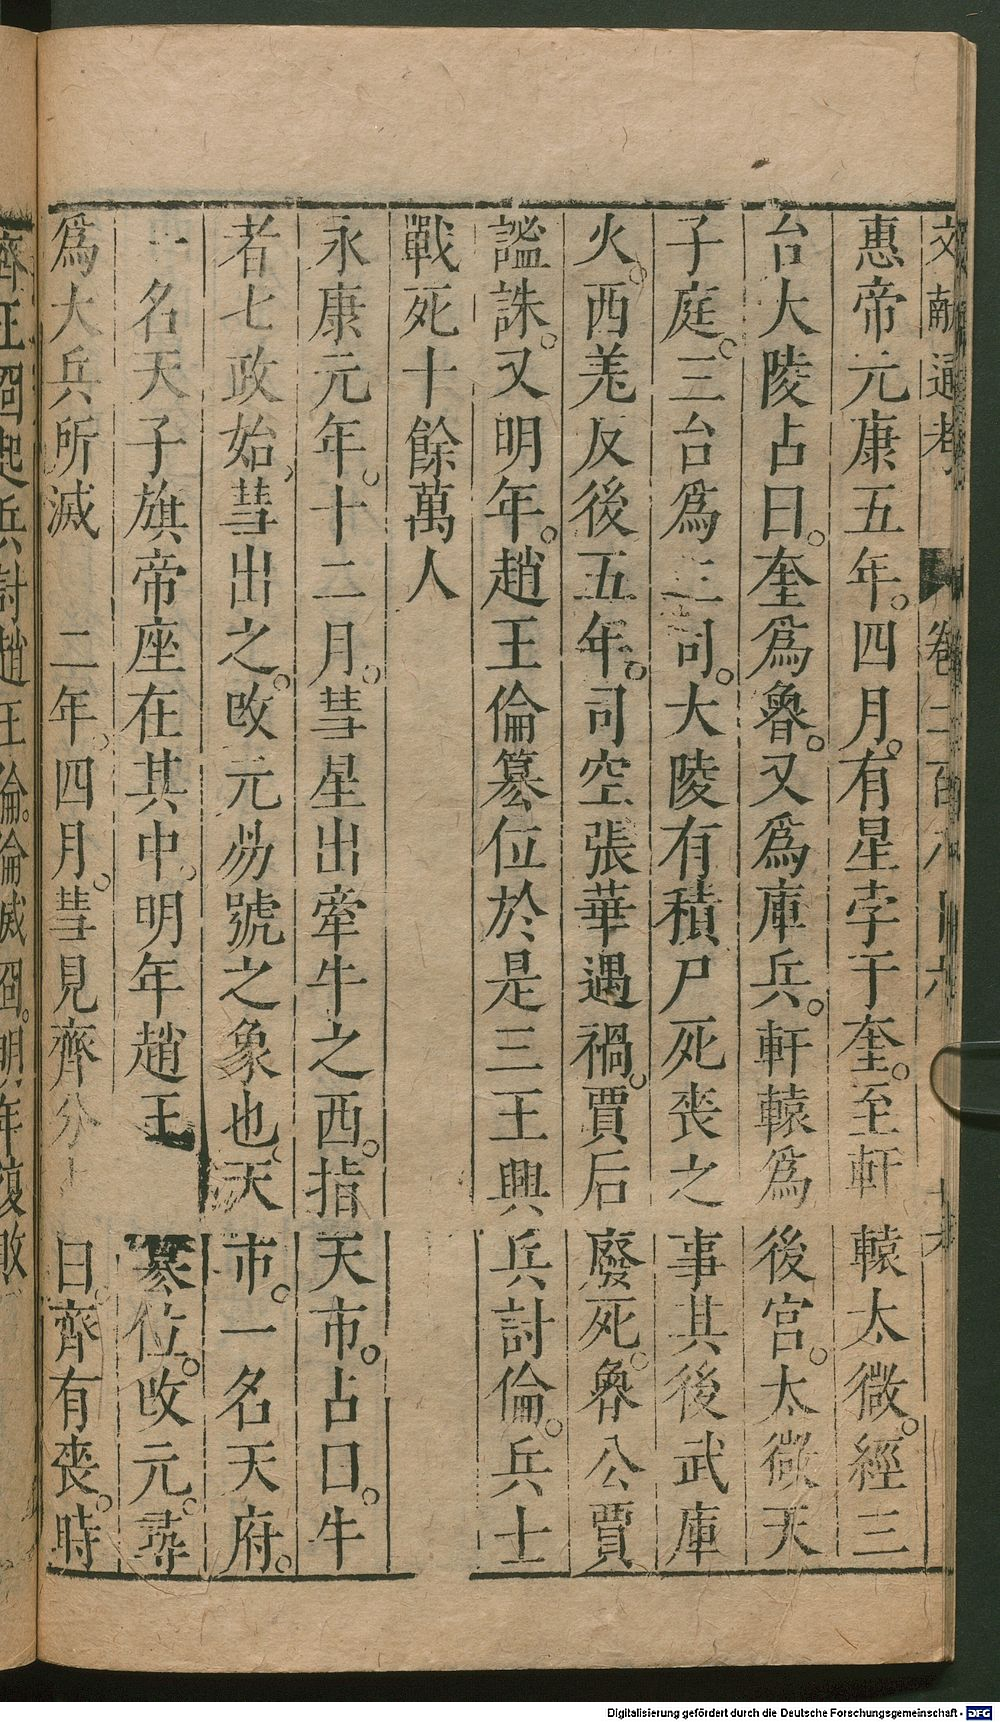 文獻通考 卷二百八十六
惠帝元康五年。四月。有星孛于奎。至軒轅太微。經三
台大陵占曰。奎爲魯。又爲庫兵。軒轅爲後宮。太微天
子庭。三台爲三司。大陵有積尸死喪之事其後武庫
火。西羌反後五年。司空張華遇禍。賈后廢死。魯公賈
謐誅。又明年。趙王倫簒位於是三王興兵討倫。兵士
戰死十餘萬人
永康元年。十二月。彗星出牽牛之西。指天市。占曰。牛
者七政始。彗出之。攺元昜號之象也。天市。一名天府。
一名天子旗帝座在其中。明年趙王簒位。攺元。尋
爲大兵所滅 二年。四月。彗見齊分 曰。齊有喪。時
齊王冏起兵討趙王倫。倫滅冏。明年復敗
Digitalisierung gefördert durch die Deutsche Forschungsgemeinschaft - DFG